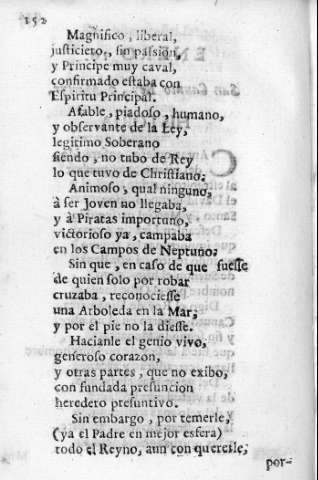 152
Magnifico, liberal,
justiciero, sin passion,
y Principe muy caval,
confirmado estaba con
Espiritu Principal.
Afable, piadoso, humano,
y observante de la Ley,
legitimo Soberano
siendo, no tubo de Rey
lo que tuvo de Christiano:
Animoso, qual ninguno,
à ser Joven no llegaba,
y à Piratas importuno,
victorioso ya, campaba
en los Campos de Neptuno:
Sin que, en caso de que fuesse
de quien solo por robar
cruzaba, reconociesse
una Arboleda en la Mar,
y por el pie no la diesse.
Hacianle el genio vivo,
generoso corazon,
y otras partes, que no exibo,
con fundada presuncion
heredero presuntivo.
Sin embargo, por temerle,
(ya el Padre en mejor esfera)
todo el Reyno, aun con quererle,
por-